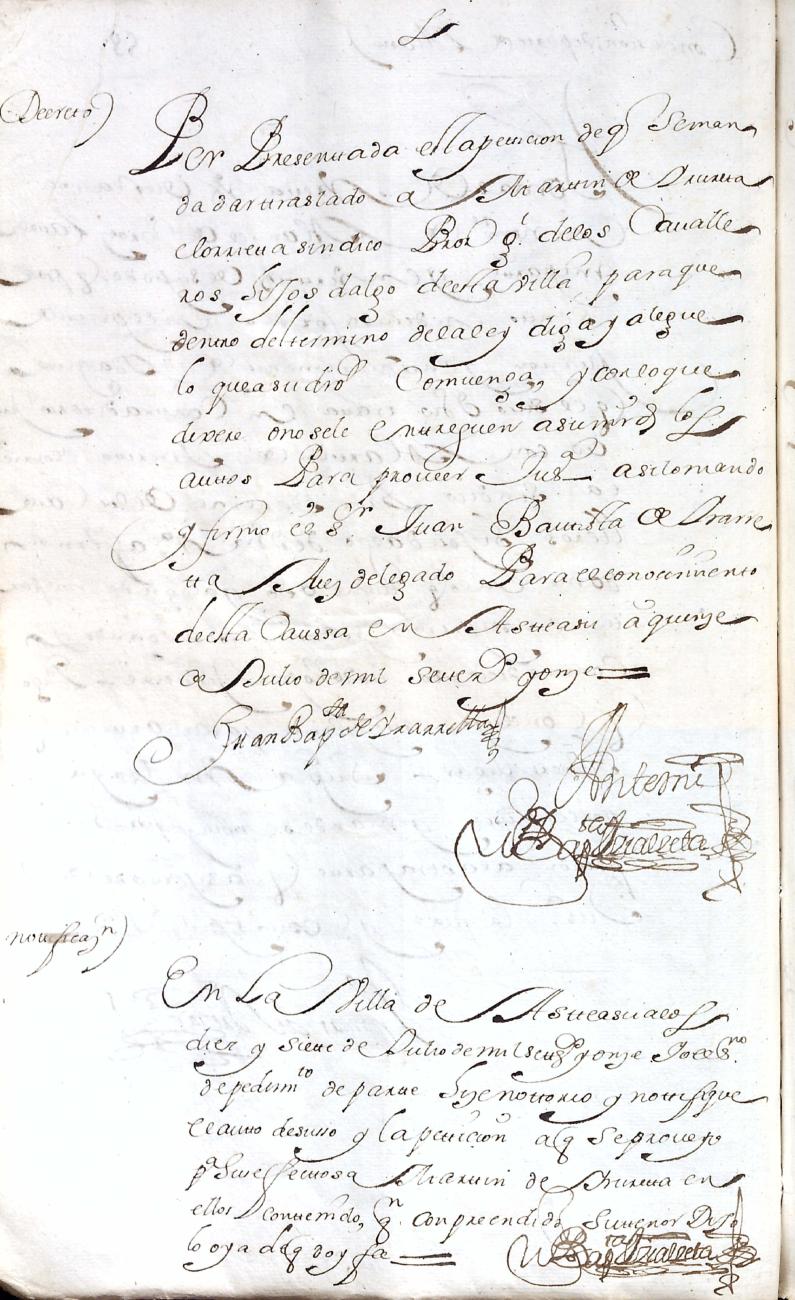 Decreto)
Por Presentada esta peticion de q Seman
da dar ttraslado a Martin de Urureta
elorrieta sindico Pror g.l delos Cavalle
ros hijos dalgo de esta villa para que
dentro deltermino delaley diga y alegue
lo que asu dro Combenga, y con lo que
dixere o no sele entreguen a su mrd los
autos Para proveer Jusa asi lo mando
y firmo el Sr Juan Bautista de Yrarre
tta Juez delegado Para el conocimiento
de esta Caussa en Asteasu a quinze
de Jullio de mil setezos y onze
Juan Bapta de Yrarretta
Antemi
Bapta
notificaon)
En La Villa de Asteasu a los
diez y siete de Jullio de mil setezos y onze Yo el Sno
de pedimto de parte hize nottorio y notifique
el autto desuso y la peticion a q Se proveyo
pa Su effecto a Martin de Urureta en
ellos contenido, qn conpreendido Su tenor Dijo
lo oya de q doy fee
Bapta